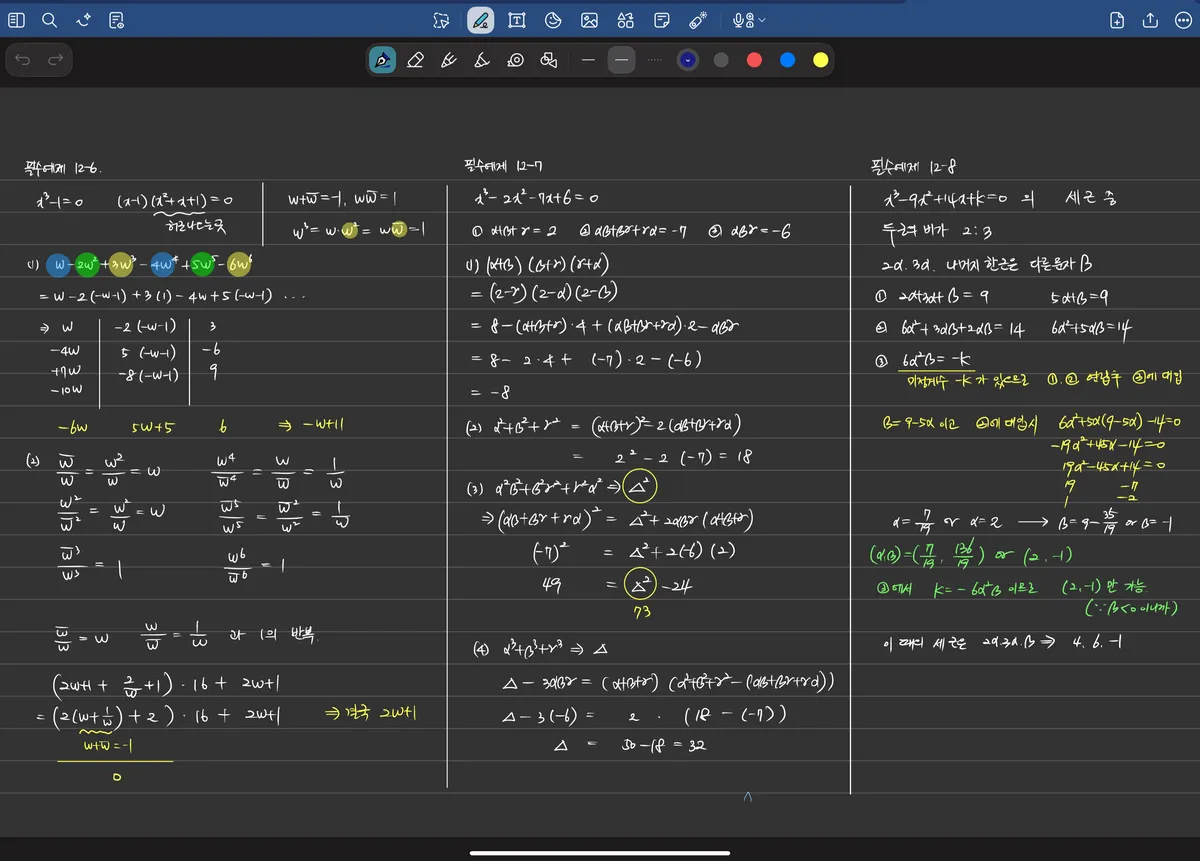 필수예제 12-6.
x³-1=0 (x-1)(x²+x+1)=0
허근나오는곳
w+w̅=-1, ww̅=1
w³=w·w²=ww̅=1
(1) w-2w²+3w³-4w⁴+5w⁵-6w⁶
=w-2(-w-1)+3(1)-4w+5(-w-1) ...
⇒ w -2(-w-1) 3
-4w 5(-w-1) -6
+7w -8(-w-1) 9
-10w
-6w 5w+5 6 ⇒ -w+11
(2) w̅/w = w²/w = w w⁴/w̅⁴ = w/w̅ = 1/w
w²/w̅² = w²/w = w w̅⁵/w⁵ = w̅²/w² = 1/w
w̅³/w³ = 1 w⁶/w̅⁶ = 1
w̅/w = w w/w̅ = 1/w 과 1의 반복.
(2w+1 + 2/w +1)·16 + 2w+1
=(2(w+1/w)+2)·16 + 2w+1 ⇒ 결국 2w+1
w+w̅=-1
0
필수예제 12-7
x³-2x²-7x+6=0
① α+β+r=2 ② αβ+βr+rα=-7 ③ αβr=-6
(1) (α+β)(β+r)(r+α)
=(2-r)(2-α)(2-β)
=8-(α+β+r)·4+(αβ+βr+rα)·2-αβr
=8-2·4+(-7)·2-(-6)
=-8
(2) α²+β²+r² = (α+β+r)²-2(αβ+βr+rα)
= 2²-2(-7)=18
(3) α²β²+β²r²+r²α² ⇒ △²
⇒(αβ+βr+rα)² = △²+2αβr(α+β+r)
(-7)² = △²+2(-6)(2)
49 = △²-24
73
(4) α³+β³+r³ ⇒ △
△-3αβr=(α+β+r)(α²+β²+r²-(αβ+βr+rα))
△-3(-6) = 2 · (18-(-7))
△ = 50-18=32
필수예제 12-8
x³-9x²+14x+k=0 의 세근 중
두근의 비가 2:3
2α.3α. 나머지 한근은 다른문자 β
① 2α+3α+β=9 5α+β=9
② 6α²+3αβ+2αβ=14 6α²+5αβ=14
③ 6α²β=-k
미정계수 -k가 있으므로 ①.② 연립후 ③에 대입
β=9-5α 이고 ②에 대입시 6α²+5α(9-5α)-14=0
-19α²+45α-14=0
19α²-45α+14=0
19 -7
1 -2
α=7/19 or α=2 → β=9-35/19 or β=-1
(α,β)=(7/19, 136/19) or (2,-1)
③에서 k=-6α²β 이므로 (2,-1)만 가능
(∵β<0이니까)
이 때의 세근은 2α.3α.β ⇒ 4.6.-1